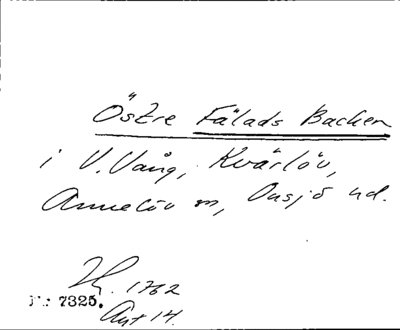 Östre Fälads Backen
i V. Vång, Kvärlöv,
Annelöv m, Onsjö hd.
1762
Nr: 7325.
Akt 14.